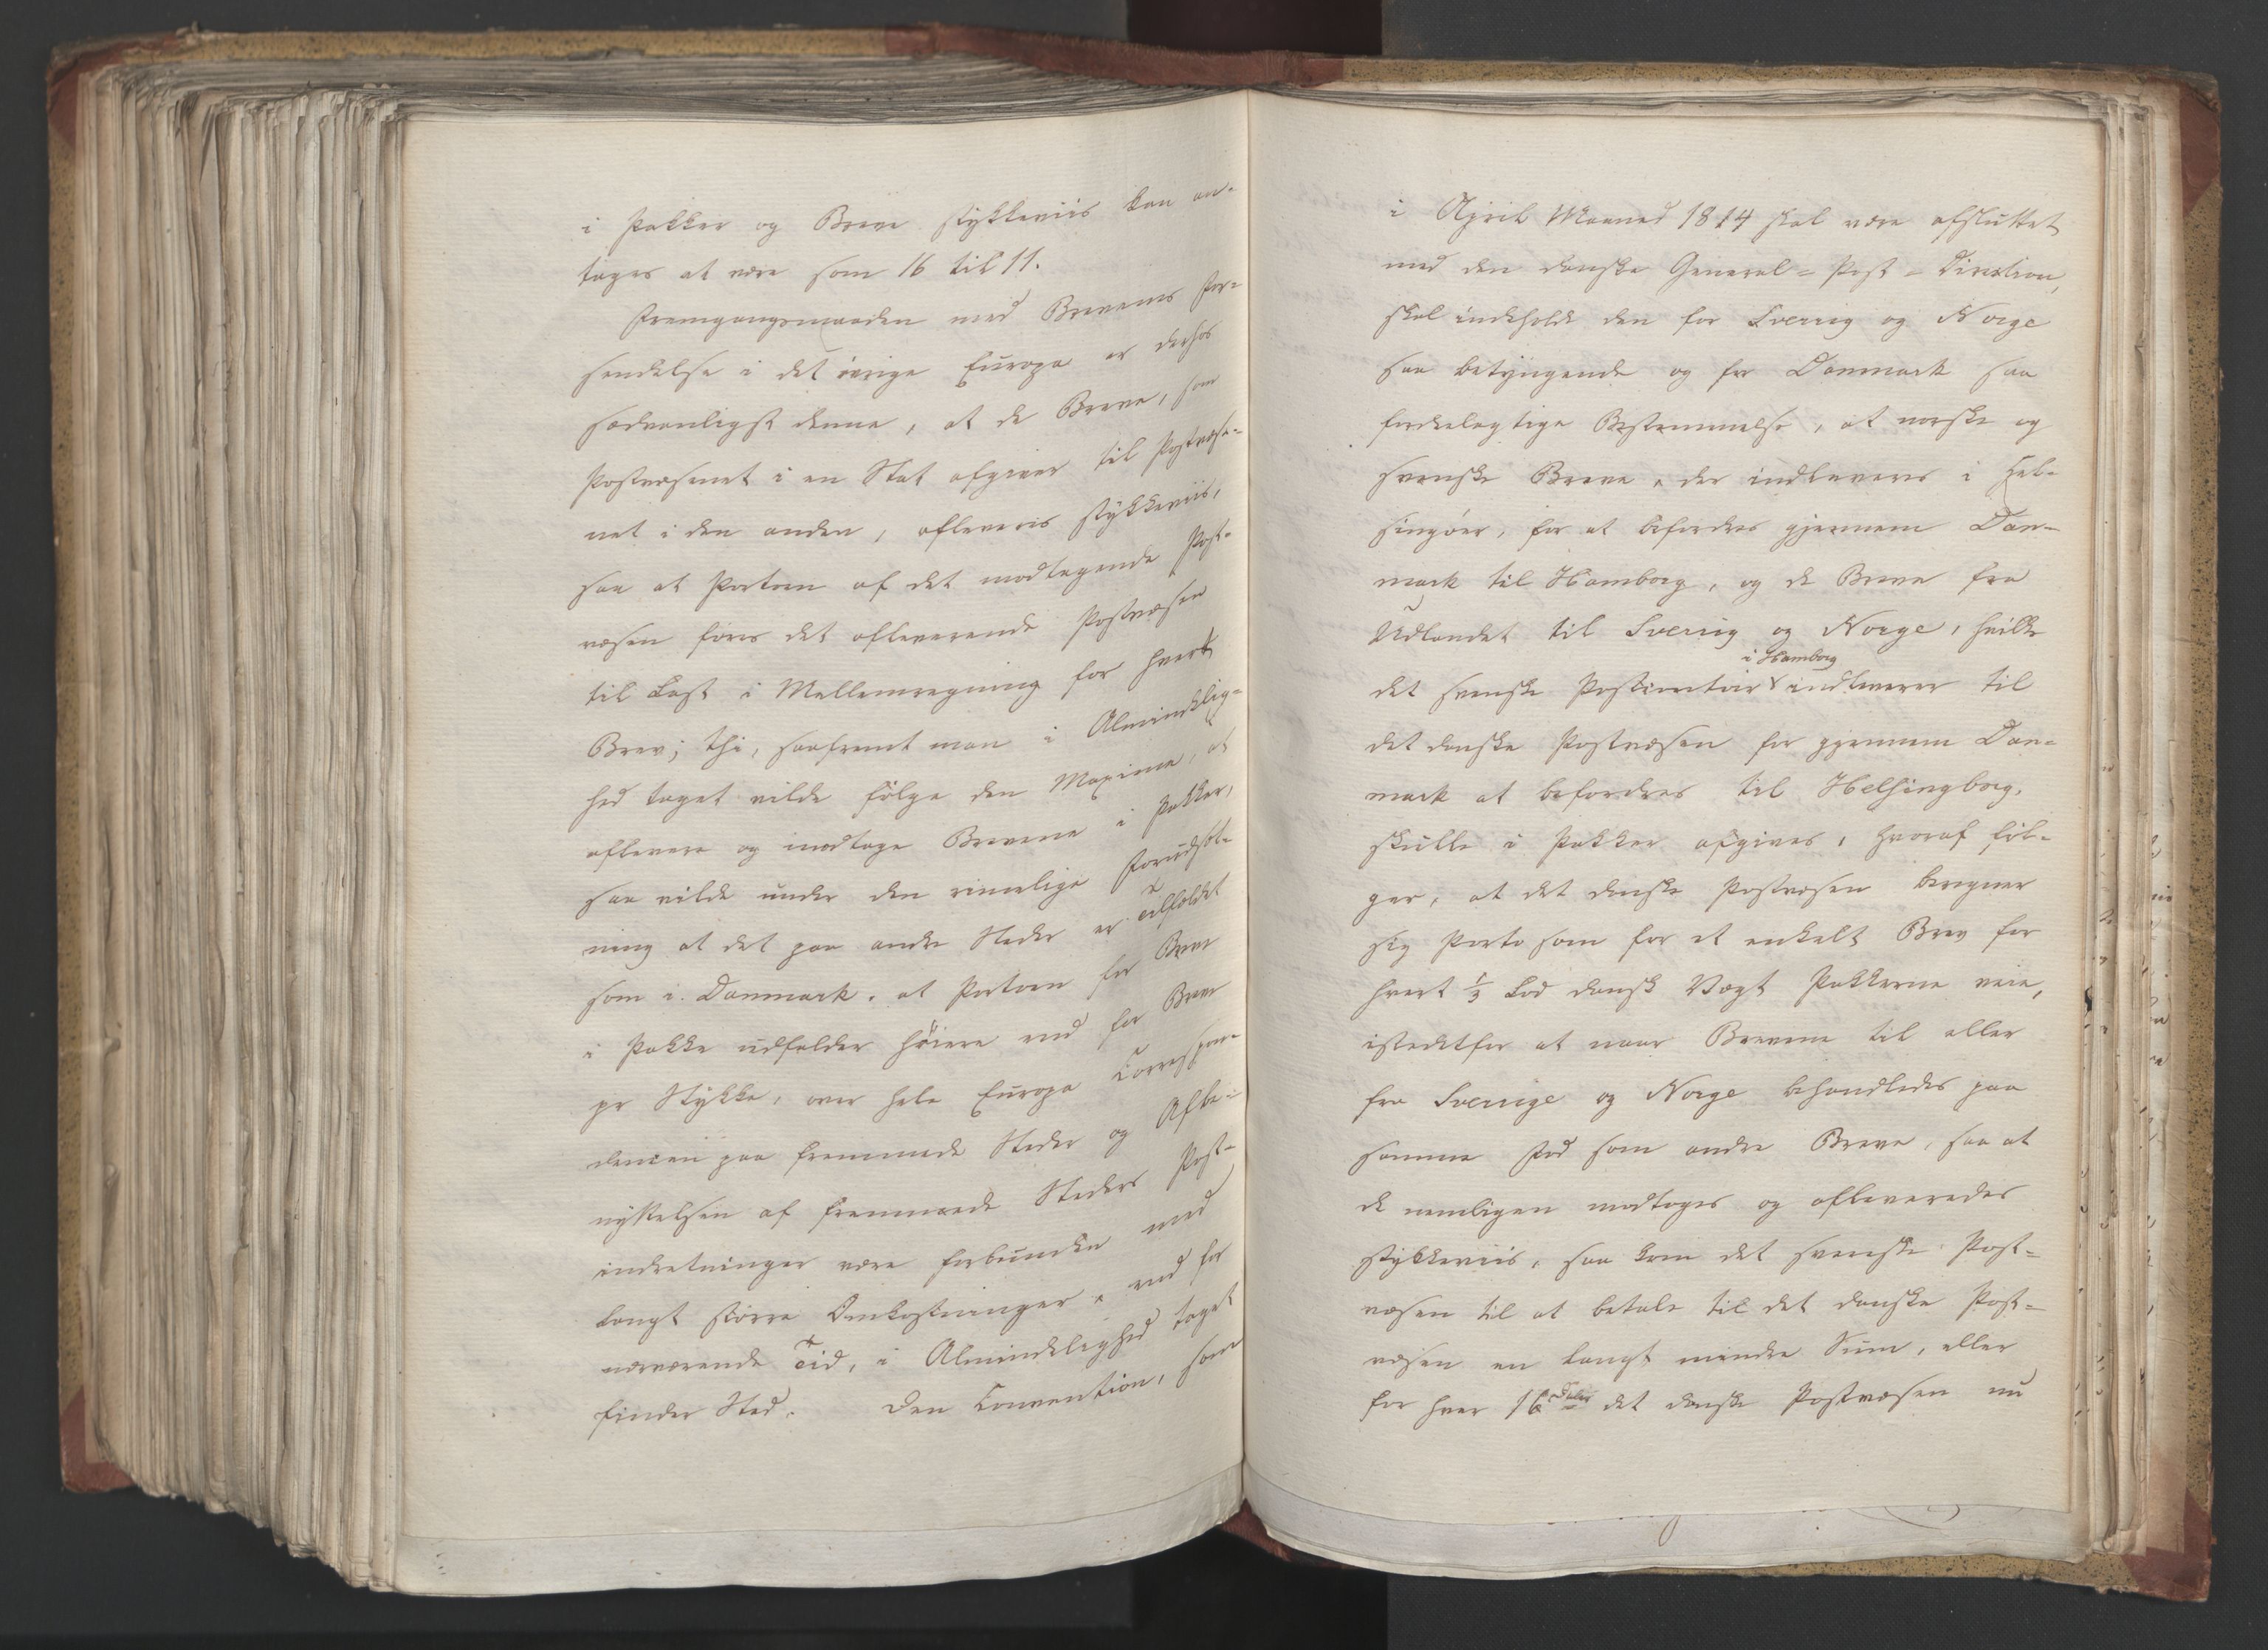 i Pakker og Breve stykkeviis kan an-
tages at være som 16 til 11.
Fremgangsmaaden med Brevenes For-
sendelse i det øvrige Europa er derhos
sædvanligst denne, at de Breve, som
Postvæsenet i en Stat afgiver til Postvæse-
net i den anden, afleveres stykkeviis,
saa at Portoen af det modtagende Post-
væsen føres det afleverende Postvæsen
til Last i Mellemregning for hvert
Brev; thi, saafremt man i Almindelig-
hed taget vilde følge den Maxime, at
aflevere og modtage Brevene i Pakker,
saa vilde under den rimelige Forudsæt-
ning at det paa andre Steder er Tilfældet
som i Danmark, at Portoen for Breve
i Pakke udfalder høiere end for Breve
pr Stykke, over hele Europa Correspon-
dencen paa fremmede Steder og Afbe-
nyttelsen af fremmede Steders Post-
indretninger være forbunden med
langt større Omkostninger, end for
nærværende Tid, i Almindelighed taget
finder Sted. Den Convention, som
i April Maaned 1814 skal være afsluttet
med den danske General-Post-Direction,
skal indeholde den for Sverrig og Norge
saa betyngende og for Danmark saa
fordeelagtige Bestemmelse, at norske og
svenske Breve, der indleveres i Hel-
singøer, for at befordres gjennem Dan-
mark til Hamborg, og de Breve fra
Udlandet til Sverrig og Norge, hvilke
i Hamborg
det svenske Postcontoir indleverer til
det danske Postvæsen for gjennem Dan-
mark at befordres til Helsingborg,
skulle i Pakker afgives, hvoraf føl-
ger, at det danske Postvæsen beregner
sig Porto som for et enkelt Brev for
hvert ½ Lod dansk Vægt Pakkerne veie,
istedetfor at naar Brevene til eller
fra Sverrige og Norge behandledes paa
samme Fod som andre Breve, saa at
de nemligen modtoges og afleveredes
stykkeviis, saa kom det svenske Post-
væsen til at betale til det danske Post-
væsen en langt mindre Sum, eller
for hver 16 det danske Postvæsen nu